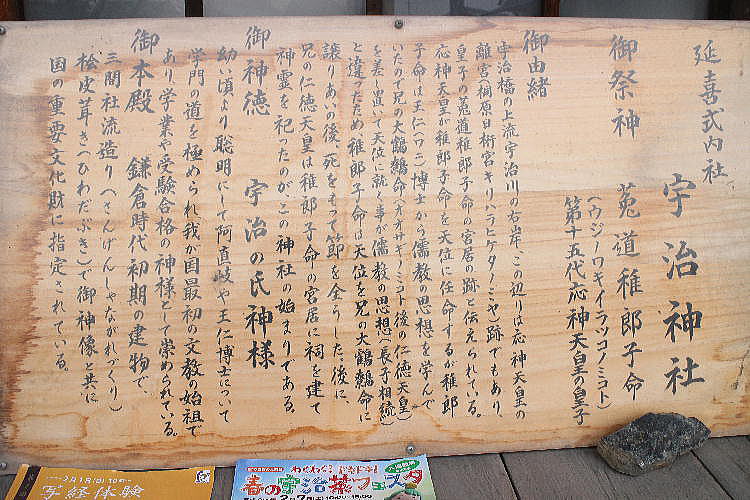 延喜式内社
宇治神社
御祭神 菟道稚郎子命
(ウジノワキイラツコノミコト)
第十五代応神天皇の皇子
御由緒
宇治橋の上流、宇治川の右岸、この辺りは応神天皇の
離宮(桐原日桁宮キリハラヒケタノミヤ)跡でもあり、
皇子の菟道稚郎子命の宮居の跡と伝えられている。
応神天皇が稚郎子命を天位に任命するが稚郎
子命は王仁(ワニ)博士から儒教の思想を学んで
いたので兄の大鷦鷯命(オオサギノミコト後の仁徳天皇)
を差し置いて天位に就く事が儒教の思想(長子相続)
と違ったため稚郎子命は天位を兄の大鷦鷯命に
譲りあいの後、死をもって節を全うした。後に、
兄の仁徳天皇は稚郎子命の宮居に祠を建て
神霊を祀ったのがこの神社の始まりである。
御神徳 宇治の氏神様
幼い頃より聡明にして阿直岐や王仁博士について
学問の道を極められ、我が国最初の文教の始祖で
あり、学業や受験合格の神様として崇められている。
御本殿 鎌倉時代初期の建物で、
三間社流造り(さんげんしゃながれづくり)
桧皮茸き(ひわだぶき)で御神像と共に
国の重要文化財に指定されている。
写経体験
春の宇治茶フェスタ